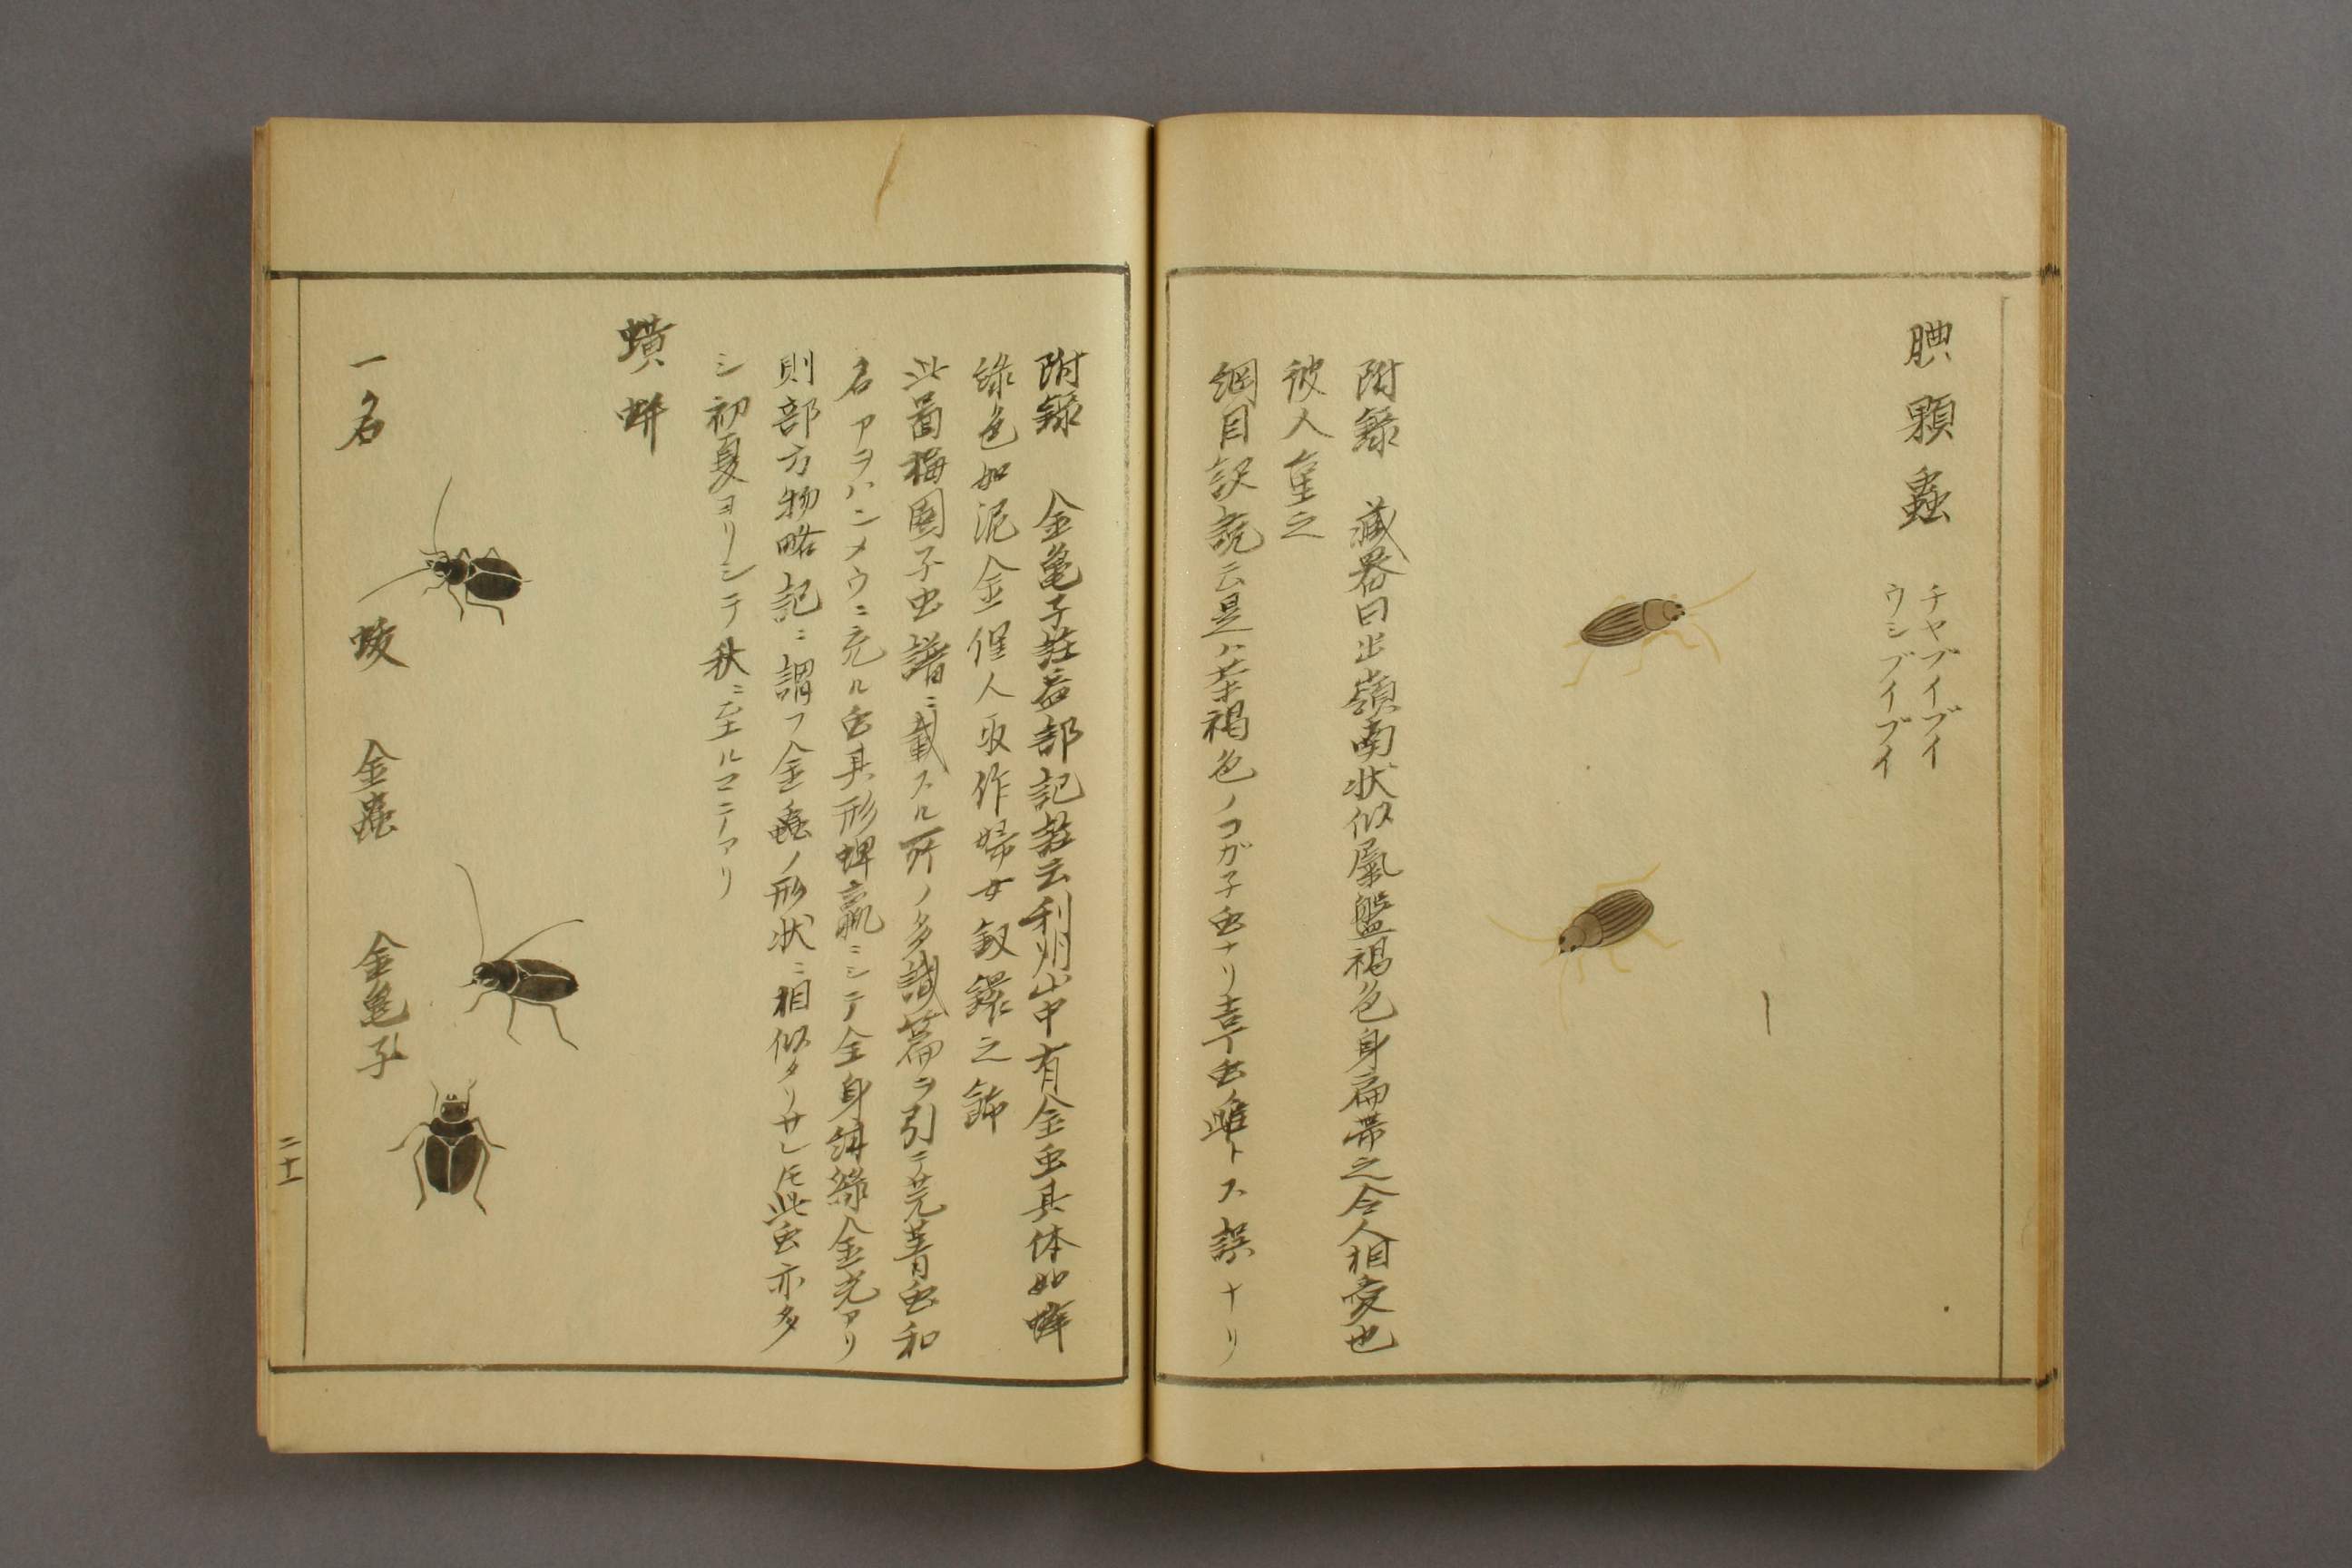 腆顆蟲
チヤブイブイ
ウシブイブイ
附錄 藏器曰出嶺南状似屬盤褐色身扁帯之令人相愛也
彼人重之
綱目訳說云是ハ茶褐色ノコガ子虫ナリ吉丁虫ノ雌トス誤ナリ
附錄 金亀子註益部記註云利州山中有金虫其体如蜂
綠色如泥金俚人取作婦女釵鐶之飾
此啚梅園子虫譜ニ載スル所ノ多識篇ヲ引テ芫菁虫和
名アヲハンメウニ充ル虫其形蜱蠃ニシテ全身緑金光アリ
則部方物略記ニ謂フ金蟲ノ形状ニ相似タリサレ𪜈此虫亦多
シ初夏ヨリシテ秋ニ至ルマテアリ
蟥蛢
一名 蛂 金蟲 金亀子
二十一